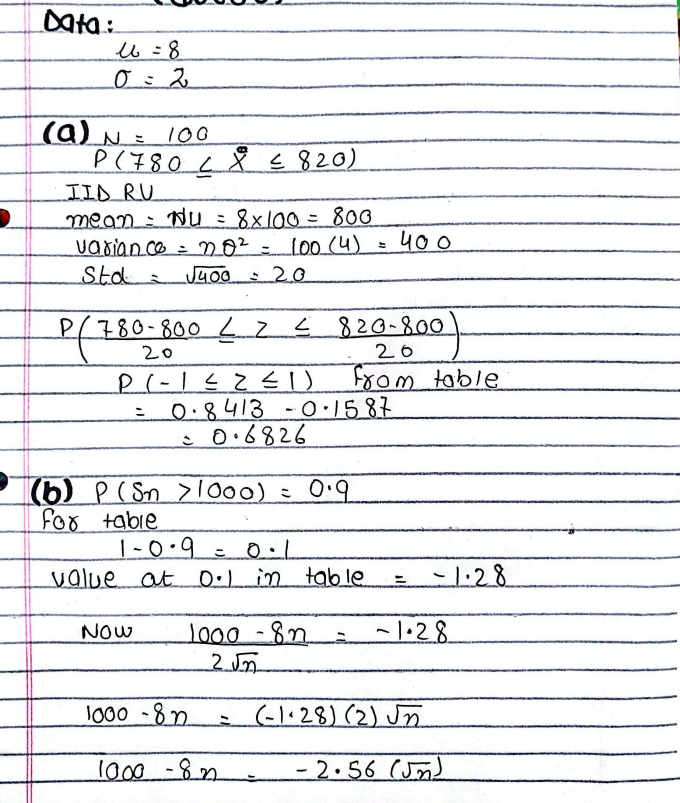 Data:
u = 8
σ = 2
(a) N = 100
P(780 ≤ X ≤ 820)
IID RV
mean = Nu = 8x100 = 800
variance = nσ² = 100(4) = 400
Std = √400 = 20
P(780-800/20 ≤ z ≤ 820-800/20)
P(-1 ≤ z ≤ 1) from table
= 0.8413 - 0.1587
= 0.6826
(b) P(Sn >1000) = 0.9
for table
1-0.9 = 0.1
value at 0.1 in table = -1.28
Now 1000-8n/2√n = -1.28
1000-8n = (-1.28)(2)√n
1000-8n = -2.56(√n)